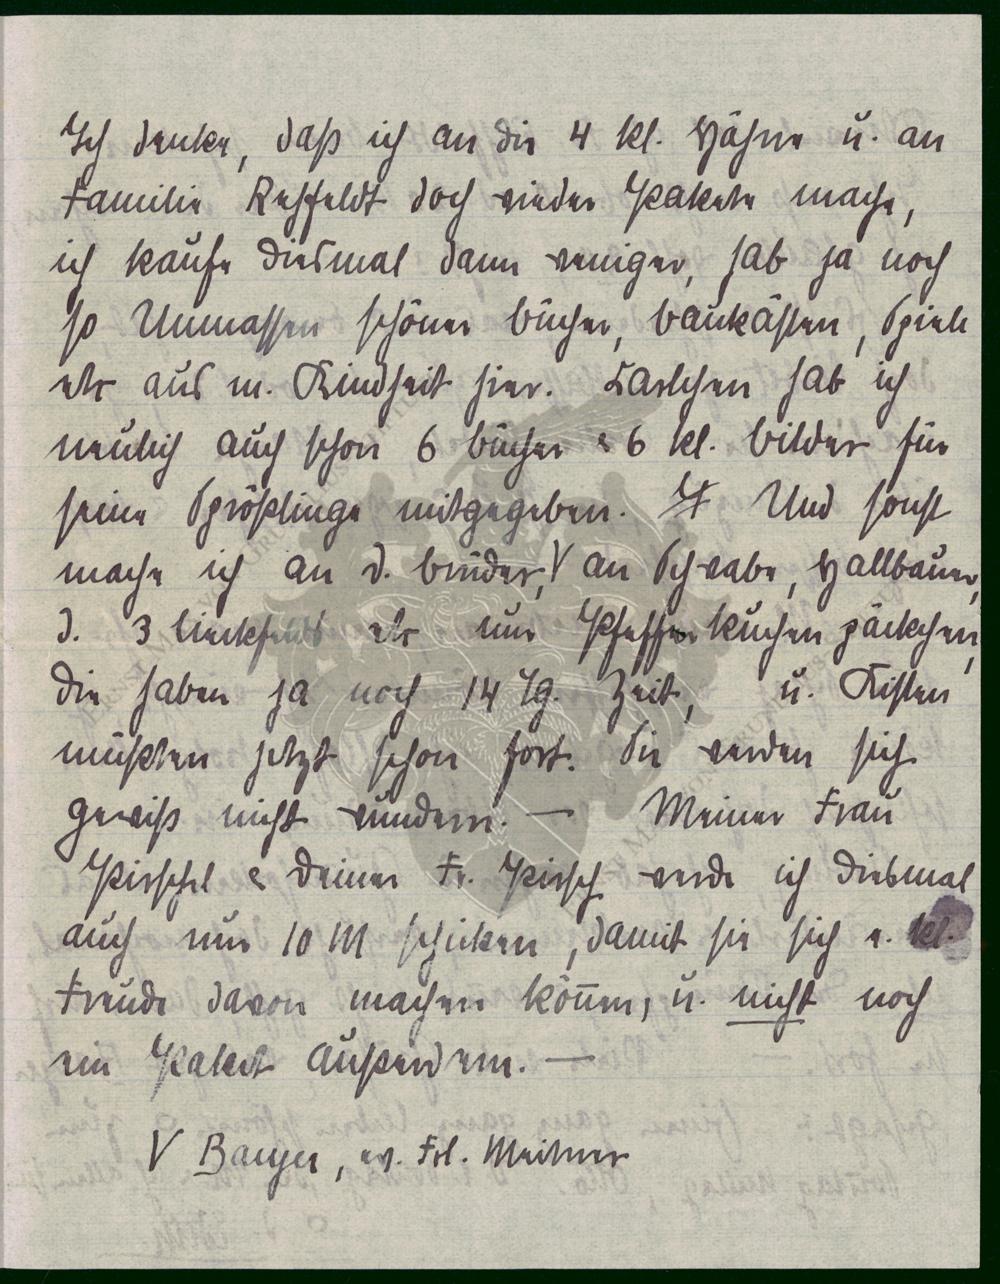 Ich denke, daß ich an die 4 kl. Hähne u. an
Familie Rehfeldt doch wieder Pakete mache,
ich kaufe diesmal dann weniger, hab ja noch
so Unmassen schöner Bücher, Baukästen, Spiele
etc aus m. Kindheit hier. Karlchen hab ich
neulich auch schon 6 Bücher & 6 kl. Bilder für
seine Sprößlinge mitgegeben. Und sonst
mache ich an d. Brüder, V an Schwabe, Hallbauer,
d. 3 etc nur Pfefferkuchenpäckchen,
die haben ja noch 14 Tg. Zeit, u. Kisten
müßten jetzt schon fort. Die werden sich
gewiß nicht wundern. — Meiner Frau
Pirschel & Deiner Fr. Pirsch werde ich diesmal
auch nur 10 M schicken, damit sie sich e. kl.
Freude davon machen könn̄en, u. nicht noch
ein Paket außerdem. —
V Barger, ev. Frl. Meitner